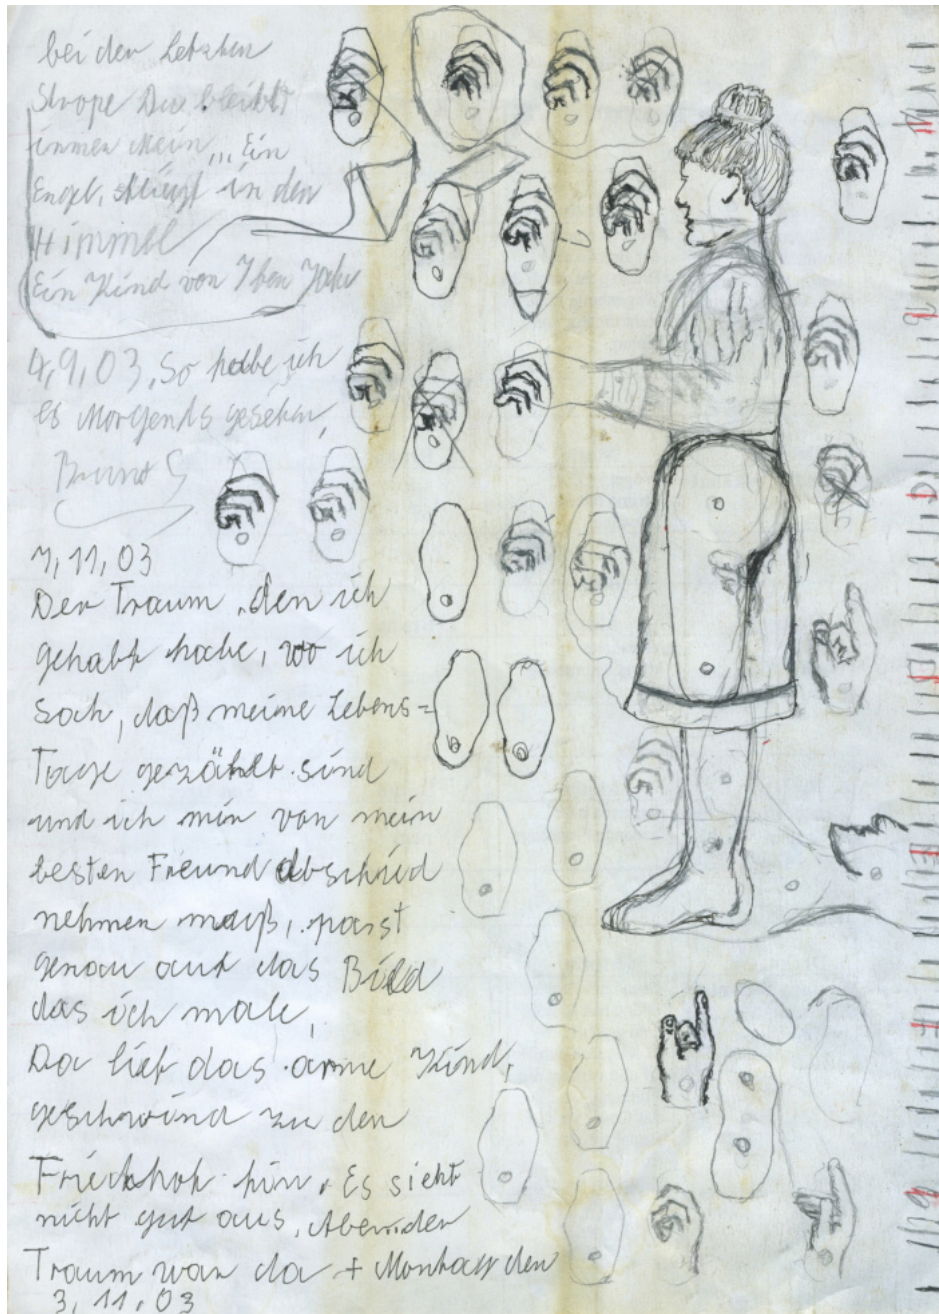 bei der Letzten
Strope Du bleibst
immer Mein ,,, Ein
Engel, steigt in den
Himmel
Ein Kind von 7ben Jahr
4,9,03, So habe ich
es Morgends gesehen,
Bruno S
7,11,03
Der Traum, den ich
gehabt habe, wo ich
sach, daß meine Lebens=
Tage gezählt sind
und ich min von mein
besten Freund abschied
nehmen muß, passt
genau auf das Bild
das ich male,
Da lief das arme Kind,
geschwind zu den
Friedhof hin, Es sieht
nicht gut aus, Aber der
Traum war da + Montag den
3, 11, 03